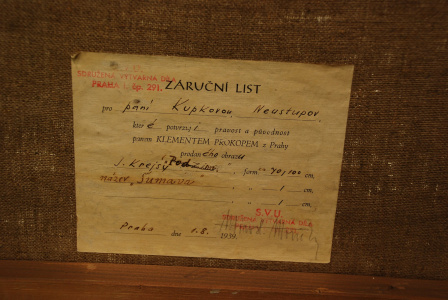 S.V.U.
SDRUŽENÁ VÝTVARNÁ DÍLA
PRAHA I, čp. 291.
ZÁRUČNÍ LIST
pro paní Kupkovou Neustupov
které potvrzuji pravost a původnost
panem KLEMENTEM PROKOPEM z Prahy
prodaného obrazu
J. Krejsy form 70/100 cm,
název „Šumava" / cm,
" / cm,
S.V.U.
Praha dne 1.8. 1939.